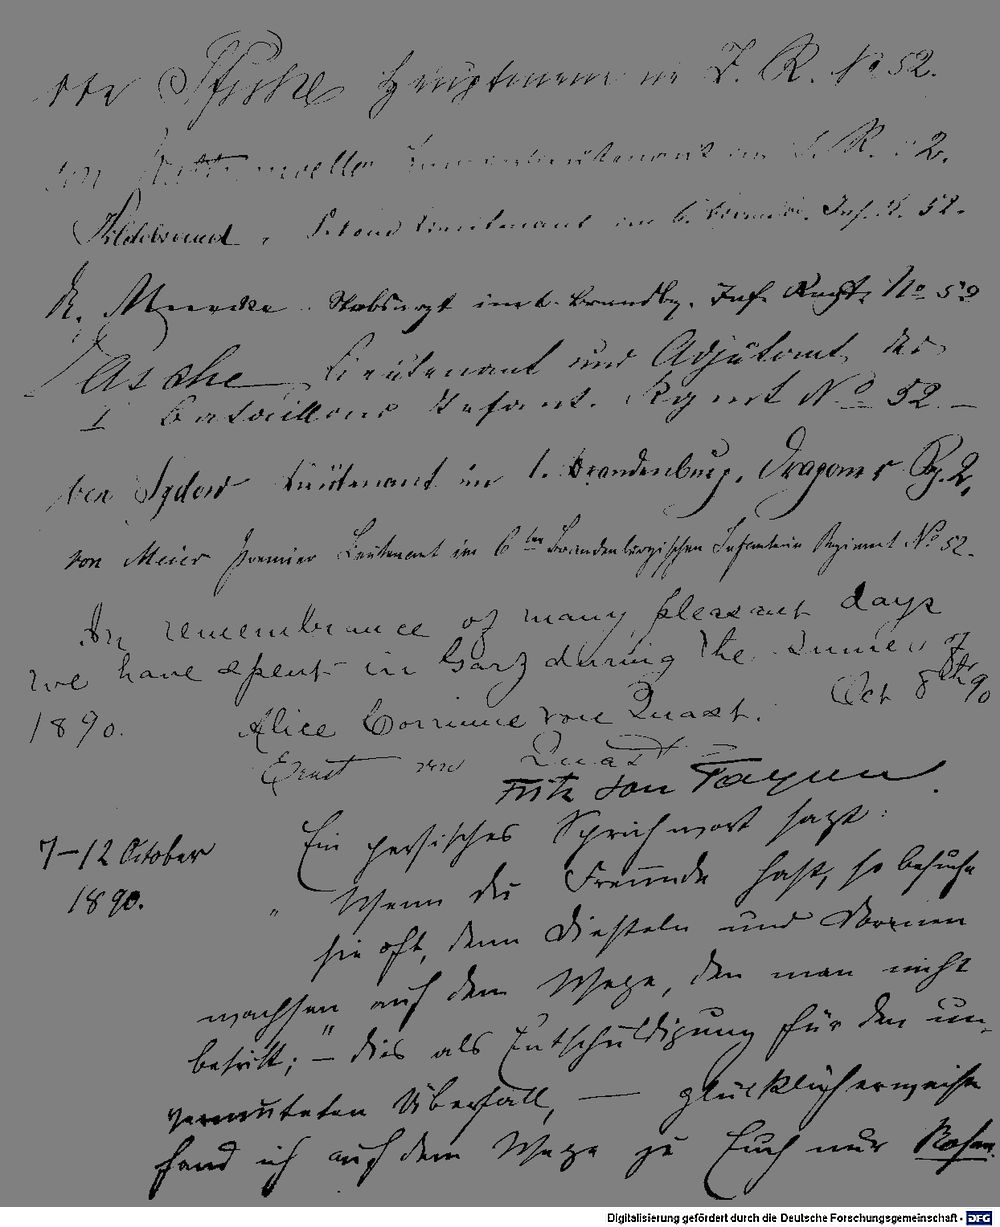 Hauptmann im I. R. No 52.
im I. R. 52.
Hildebrand, Seconde Lieutenant im 6. Brandb. Inf. R. 52.
Stabsarzt im 6. Brandbg. Inf. Regt. No 52
Lieutenant und Adjutant des
I Bataillons Infant. Regmt No 52. —
von Sydow Lieutenant im 1. Brandenburg. Dragoner Rg. 2.
von Meier Premier Leutenant im 6ten Brandenburgischen Infanterie Regiment No 52.
In remembrance of many pleasant days
we have spent in Garz during the summer of
1890. Alice Corinne von Quast. Oct 8th 90
Ernst von Quast
Fritz von
7–12 October
1890.
Ein persisches Sprichwort sagt:
„Wenn du Freunde hast, so besuche
sie oft, denn Diesteln und Dornen
wachsen auf dem Wege, den man nicht
betritt;" – dies als Entschuldigung für den un-
vermuteten Überfall, — glücklicherweise
fand ich auf dem Wege zu Euch nur Rosen.
Digitalisierung gefördert durch die Deutsche Forschungsgemeinschaft - DFG